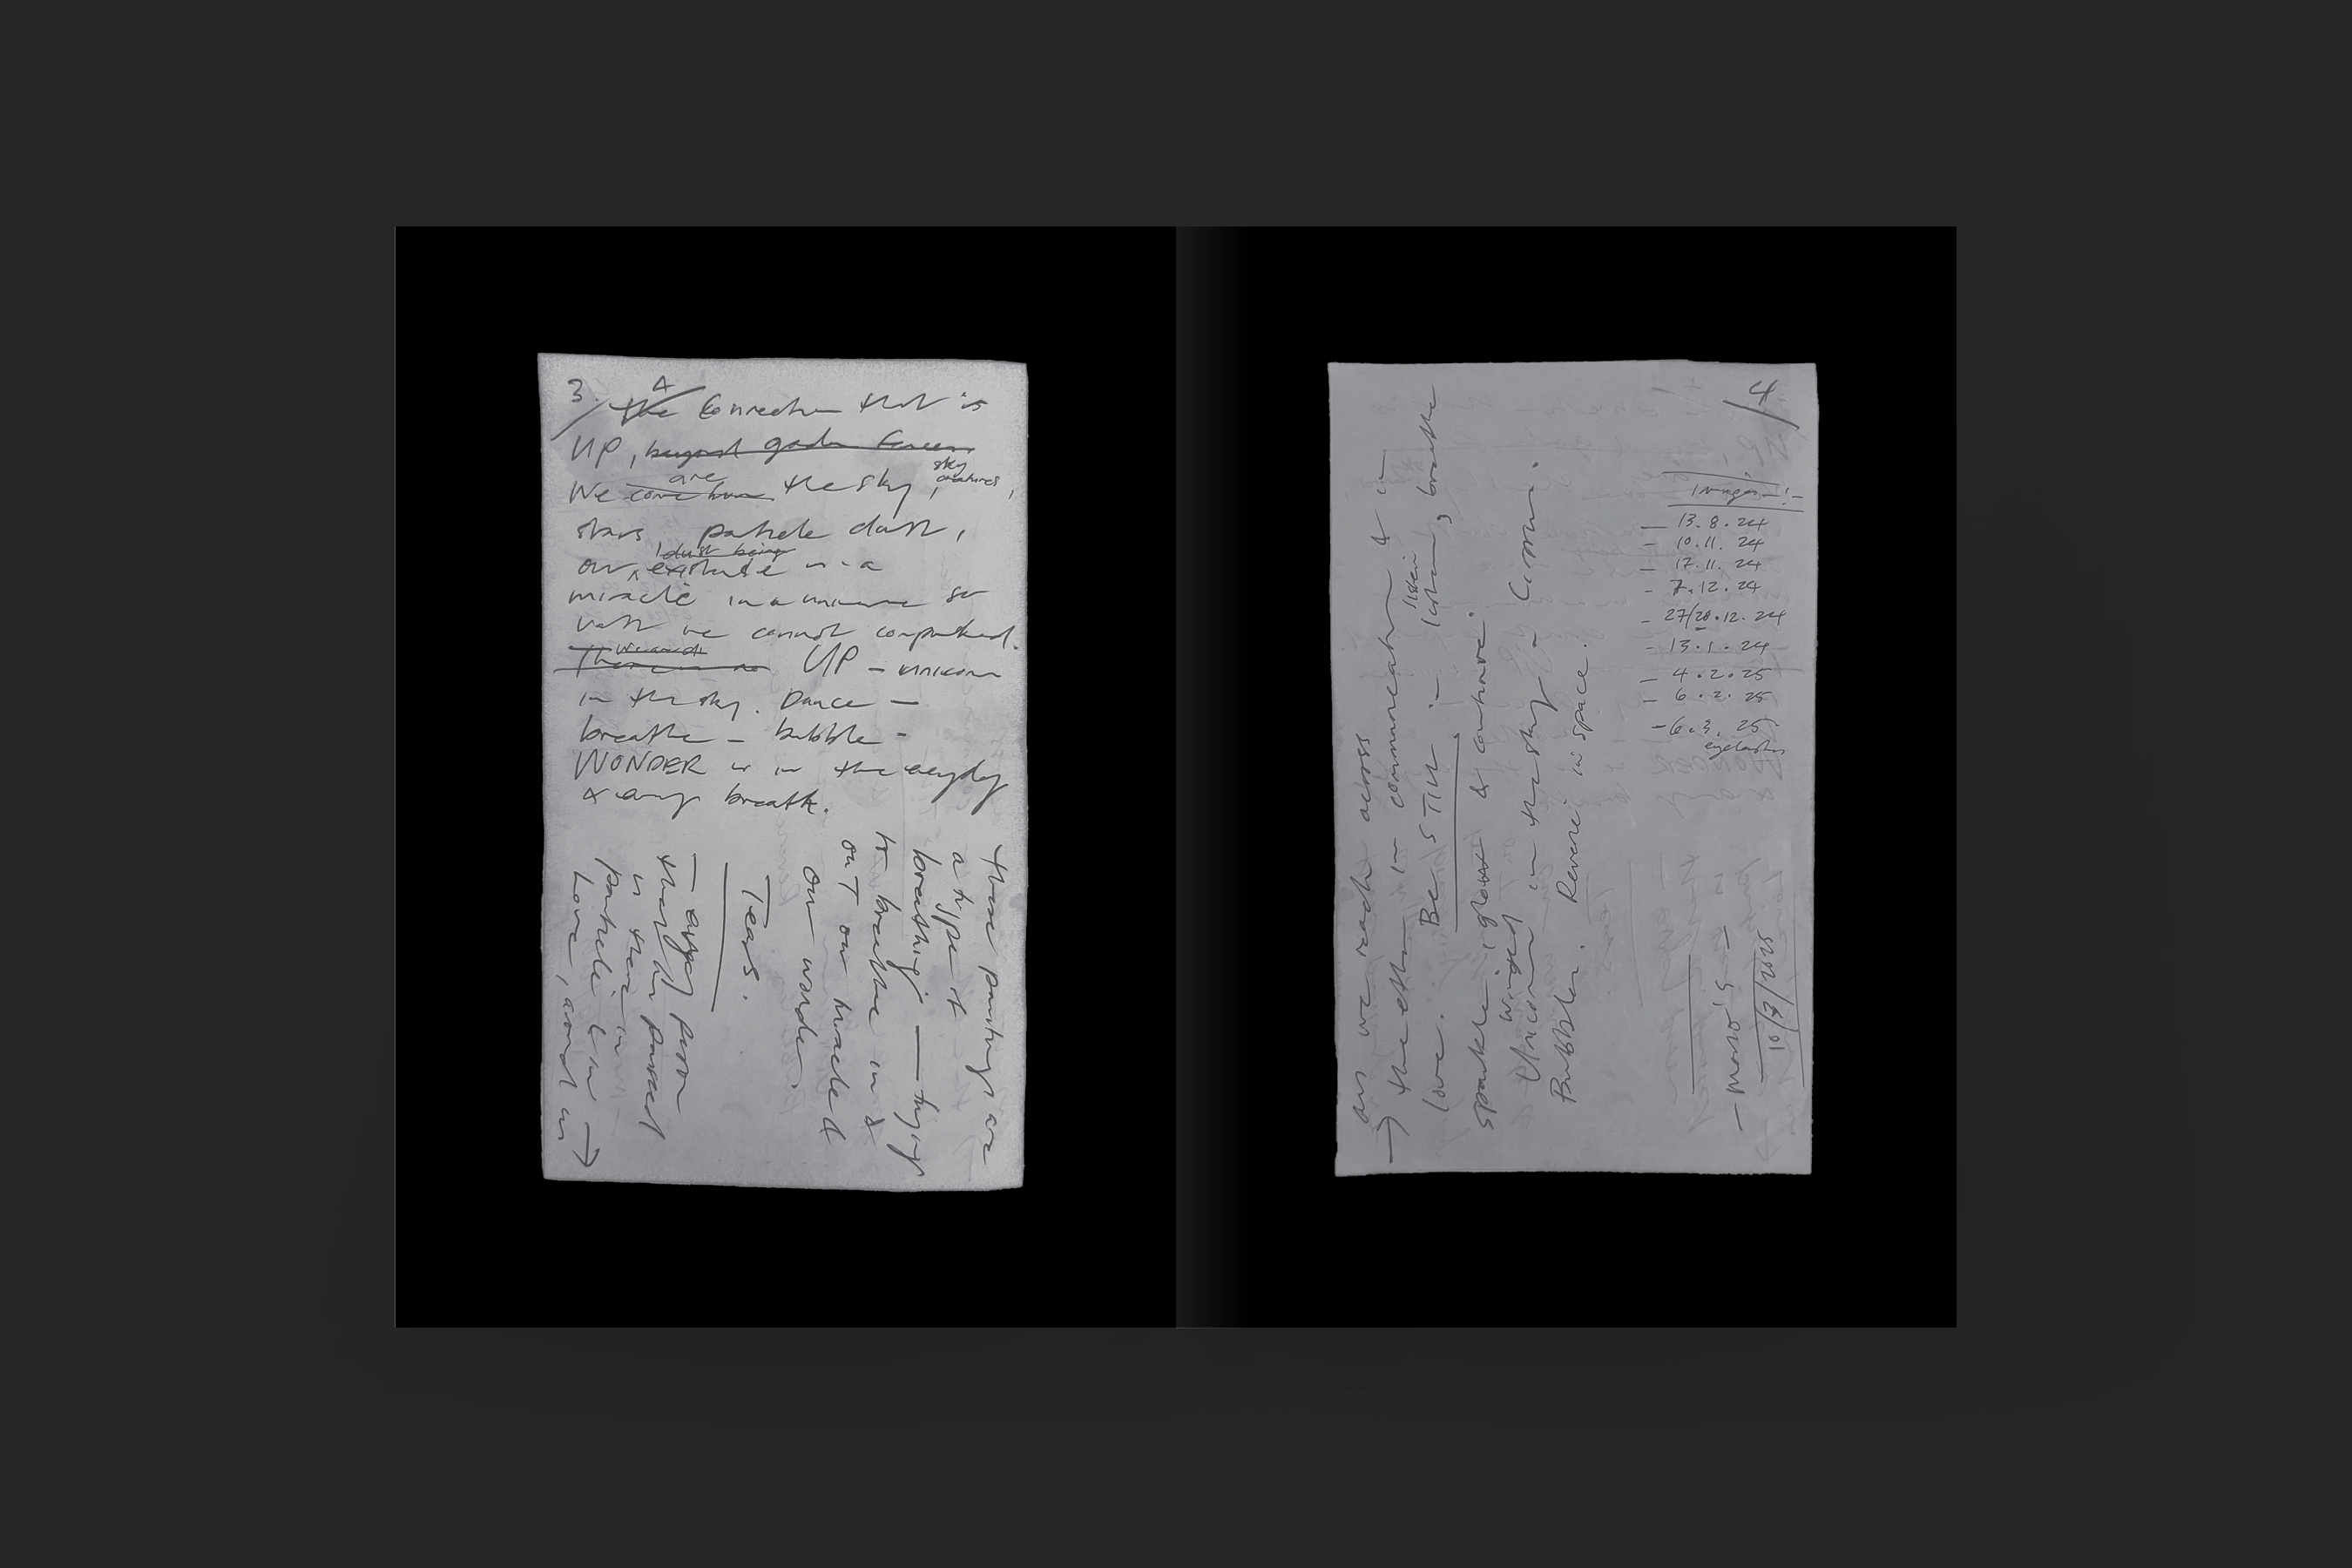 3. A
the Connection that is
UP, beyond
are
We come from the sky, sky creatures,
stars, particle dust,
dust being
our existence is a
miracle in a universe so
vast we cannot comprehend.
There is no UP – unicorn
in the sky. Dance –
breathe – bubble –
WONDER is in the everyday
& every breath.
these paintings are
a type of
breathing — trying
to breathe in &
out our miracle &
our wonder.
Tears.
– every person
that has passed
is there in
particle & in
Love, around us →
4
as we reach across
→ the ether in communication & in
love. Be STILL :– listen, breathe
listen
sparkle, glow & continue.
winged
Unicorn in the sky – Cirrus.
Bubbles. Reverie in space.
Images –:–
– 13.8.24
– 10.11.24
– 17.11.24
– 7.12.24
– 27/28.12.24
– 13.1.24
– 4.2.25
– 6.2.25
– 6.3.25
eyelashes
10/3/2025